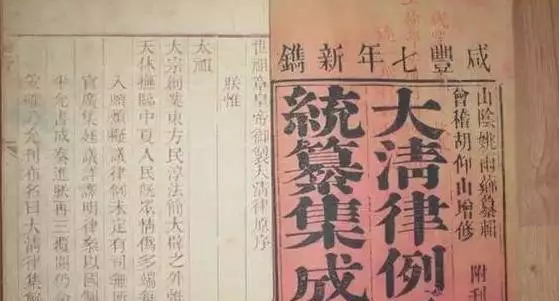 咸豐七年新鐫
山陰姚雨薌纂輯
會稽胡仰山增修
附刊
大清律例
統纂集成
世祖章皇帝御製大清律原序
朕惟
太祖
太宗創業東方民淳法簡大辟之外惟
天休撫臨中夏人民既眾情偽多端每
入頗煩擬議律例未定有司無所
官廣集廷議詳譯明律參以國制
平允書成奏進朕再三覆閱仍命
妥確乃允刊布名曰大清律集解